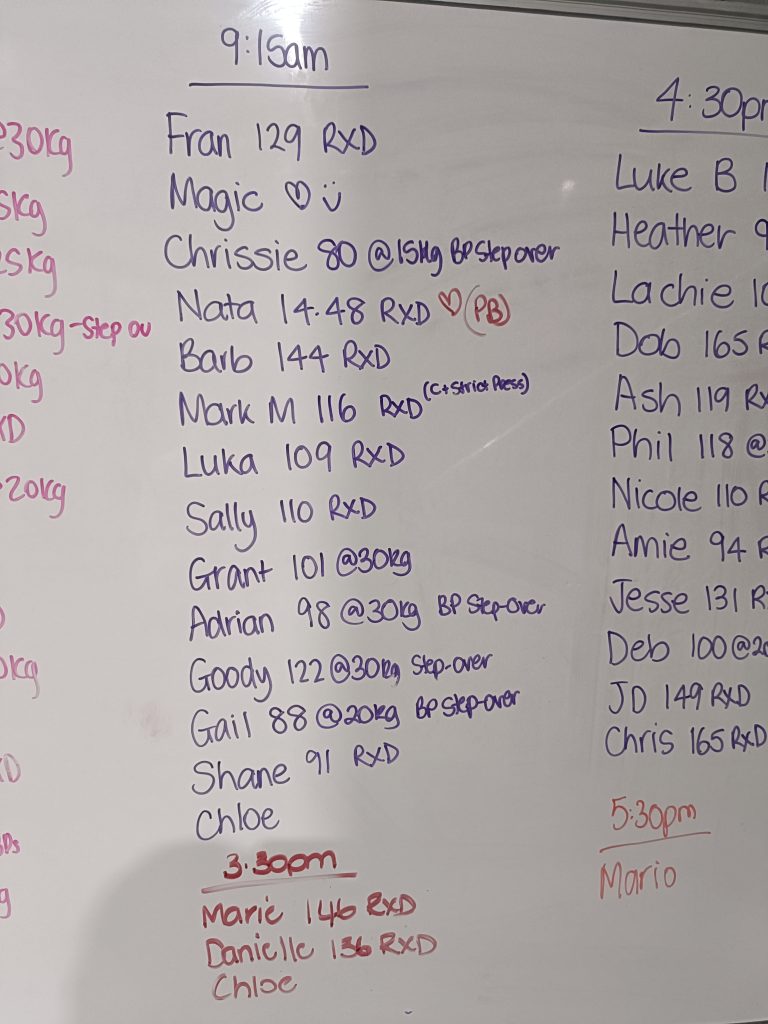 @30kg
5kg
25kg
30kg-Step ov
0kg
XD
20kg
kg
9:15am
Fran 129 RXD
Magic ♡ ü
Chrissie 80 @15kg BP Step over
Nata 14.48 RXD ♡ (PB)
Barb 144 RXD
Mark M 116 RXD (C+Strict Press)
Luka 109 RXD
Sally 110 RXD
Grant 101 @30kg
Adrian 98 @30kg BP Step-over
Goody 122 @30kg Step-over
Gail 88 @20kg BP Step-over
Shane 91 RXD
Chloe
3.30pm
Marie 146 RXD
Danielle 136 RXD
Chloe
4:30p
Luke B 1
Heather 9
Lachie 10
Dob 165 R
Ash 119 Rx
Phil 118 @
Nicole 110 R
Amie 94 R
Jesse 131 R
Deb 100 @20
JD 149 RXD
Chris 165 RXD
5:30pm
Mario